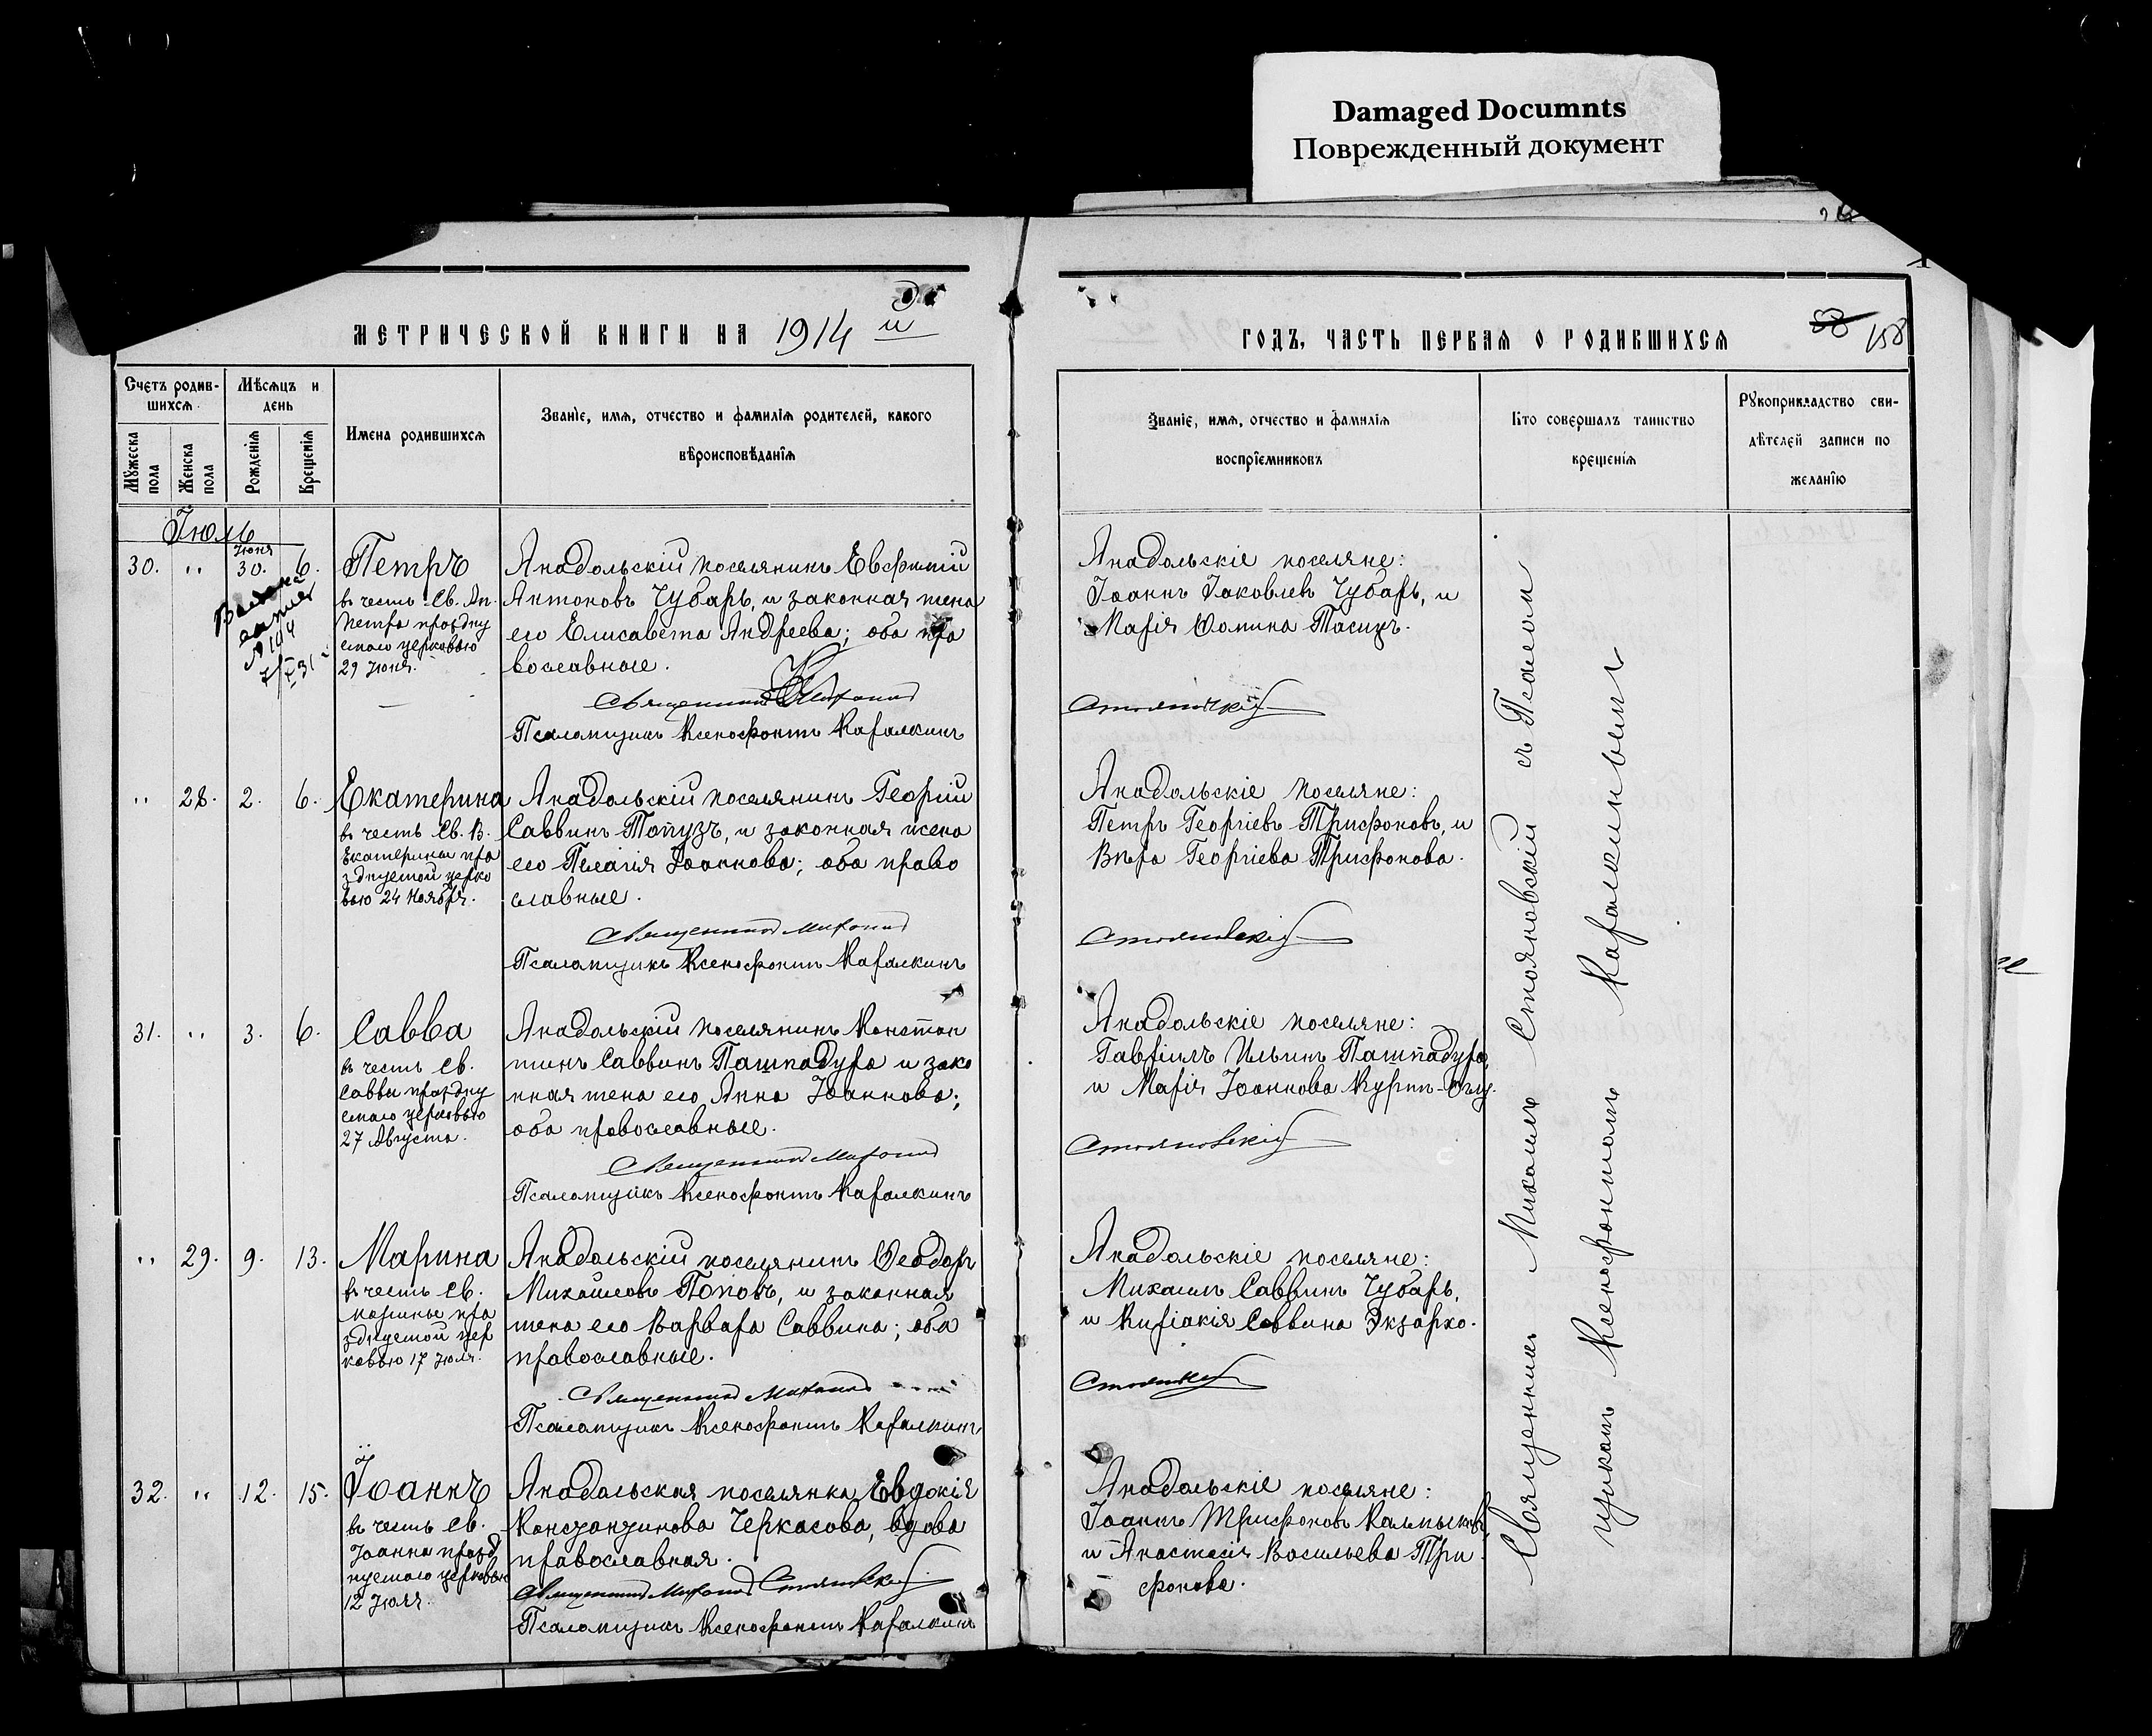 Damaged Documnts
Поврежденный документ
МЕТРИЧЕСКОЙ КНИГИ НА 1914 й
ГОДЪ, ЧАСТЬ ПЕРВАЯ О РОДИВШИХСЯ
58 158
Счетъ родив-
шихся.
Мѣсяцъ и
день
Мужеска пола
Женска пола
Рожденія
Крещенія
Имена родившихся
Званіе, имя, отчество и фамилія родителей, какого
вѣроисповѣданія
Званіе, имя, отчество и фамилія
воспріемниковъ
Кто совершалъ таинство
крещенія
Рукоприкладство сви-
дѣтелей записи по
желанію
Іюль
30. „ Іюня 30. 6.
Петръ
въ честь Св. Ап.
Петра праздну
емаго церковью
29 Іюня.
Анадольскій поселянинъ Евфимій
Антоновъ Чубарь, и законная жена
его Елисавета Андреева; оба пра
вославные.
Священникъ Михаилъ
Псаломщикъ Ксенофонтъ Каралкинъ
Анадольскіе поселяне:
Іоаннъ Іаковлевъ Чубарь, и
Марія Ѳомина Тасицъ.
Стояновскій
„ 28. 2. 6.
Екатерина
въ честь Св. В.
Екатерины пра
зднуемой церко
вью 24 Ноября.
Анадольскій поселянинъ Георгій
Саввинъ Топузъ, и законная жена
его Пелагія Іоаннова; оба право
славные.
Священникъ Михаилъ
Псаломщикъ Ксенофонтъ Каралкинъ
Анадольскіе поселяне:
Петръ Георгіевъ Трифоновъ, и
Вѣра Георгіева Трифонова.
Стояновскій
31. „ 3. 6.
Савва
въ честь Св.
Саввы праздну
емаго церковью
27 Августа.
Анадольскій поселянинъ Констан
тинъ Саввинъ Пашпадура и зако
нная жена его Анна Іоаннова;
оба православные.
Священникъ Михаилъ
Псаломщикъ Ксенофонтъ Каралкинъ
Анадольскіе поселяне:
Гавріилъ Ильинъ Пашпадура,
и Марія Іоаннова Куртъ-Оглу.
Стояновскій
„ 29. 9. 13.
Марина
въ честь Св.
Марины пра
зднуемой цер
ковью 17 Іюля.
Анадольскій поселянинъ Ѳеодоръ
Михайловъ Поповъ, и законная
жена его Варвара Саввина; оба
православные.
Священникъ Михаилъ
Псаломщикъ Ксенофонтъ Каралкинъ
Анадольскіе поселяне:
Михаилъ Саввинъ Чубарь,
и Киріакія Саввина Экзархо.
Стояновскій
32. „ 12. 15.
Іоаннъ
въ честь Св.
Іоанна празд
нуемаго церковью
12 Іюля.
Анадольская поселянка Евдокія
Константинова Черкасова, вдова
православная.
Священникъ Михаилъ Стояновскій
Псаломщикъ Ксенофонтъ Каралкинъ
Анадольскіе поселяне:
Іоаннъ Трифоновъ Калмыковъ,
и Анастасія Васильева Три
фонова.
Священникъ Михаилъ Стояновскій съ Псалом
щикомъ Ксенофонтомъ Каралкинымъ